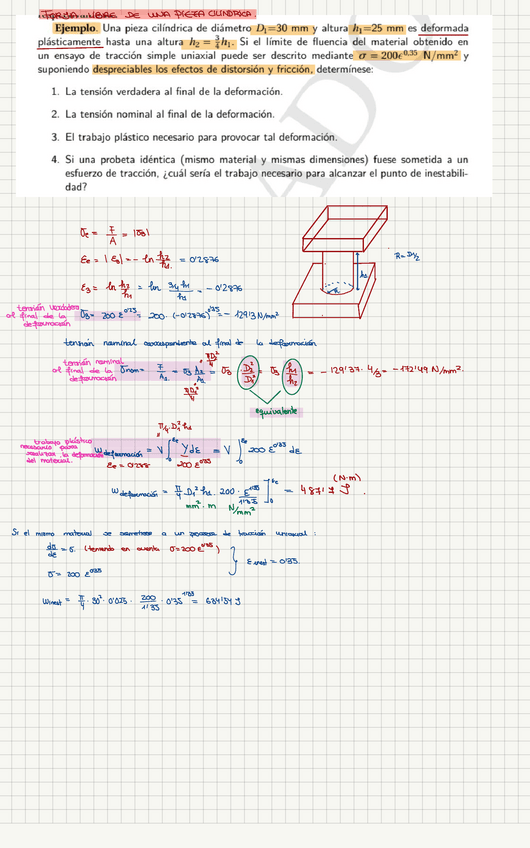 FORJA LIBRE DE UNA PIEZA CILÍNDRICA.
Ejemplo. Una pieza cilíndrica de diámetro D₁=30 mm y altura h₁=25 mm es deformada
plásticamente hasta una altura h₂ = 3/4 h₁. Si el límite de fluencia del material obtenido en
un ensayo de tracción simple uniaxial puede ser descrito mediante σ = 200ε^0,35 N/mm² y
suponiendo despreciables los efectos de distorsión y fricción, determínese:
1. La tensión verdadera al final de la deformación.
2. La tensión nominal al final de la deformación.
3. El trabajo plástico necesario para provocar tal deformación.
4. Si una probeta idéntica (mismo material y mismas dimensiones) fuese sometida a un
esfuerzo de tracción, ¿cuál sería el trabajo necesario para alcanzar el punto de inestabili-
dad?
σe = F/A = |σ3|
R = D1/2
εe = |ε3| = - ln h2/h1 = 0'2876
h1
ε3 = ln h2/h1 = ln 3/4 h1/h1 = - 0'2876
tensión verdadera
al final de la
deformación
σ3 = 200 ε^0'35 = 200 · (-0'2876)^0'35 = - 129'3 N/mm²
tensión nominal correspondiente al final de la deformación
tensión nominal
al final de la
deformación
σnom = F/A1 = σ3 A2/A1 = σ3 D2²/D1² = σ3 h1/h2 = - 129'37 · 4/3 = - 172'49 N/mm².
equivalente
π/4 · D1² h1
trabajo plástico
necesario para
realizar la deformación
del material.
W deformación = V ∫ Y dε = V ∫ 200 ε^0'35 dε
200 ε^0'35
(N·m)
W deformación = π/4 D1² h1 · 200 · ε^1'35/1'35 ]₀^εe = 487'7 J.
mm² · m N/mm²
Si el mismo material se sometiese a un proceso de tracción uniaxial:
dσ/dε = σ (teniendo en cuenta σ = 200 ε^0'35)
σ = 200 ε^0'35
= 0'35.
Winest = π/4 · 30² · 0'025 · 200/1'35 · 0'35^1'35 = 634'54 J